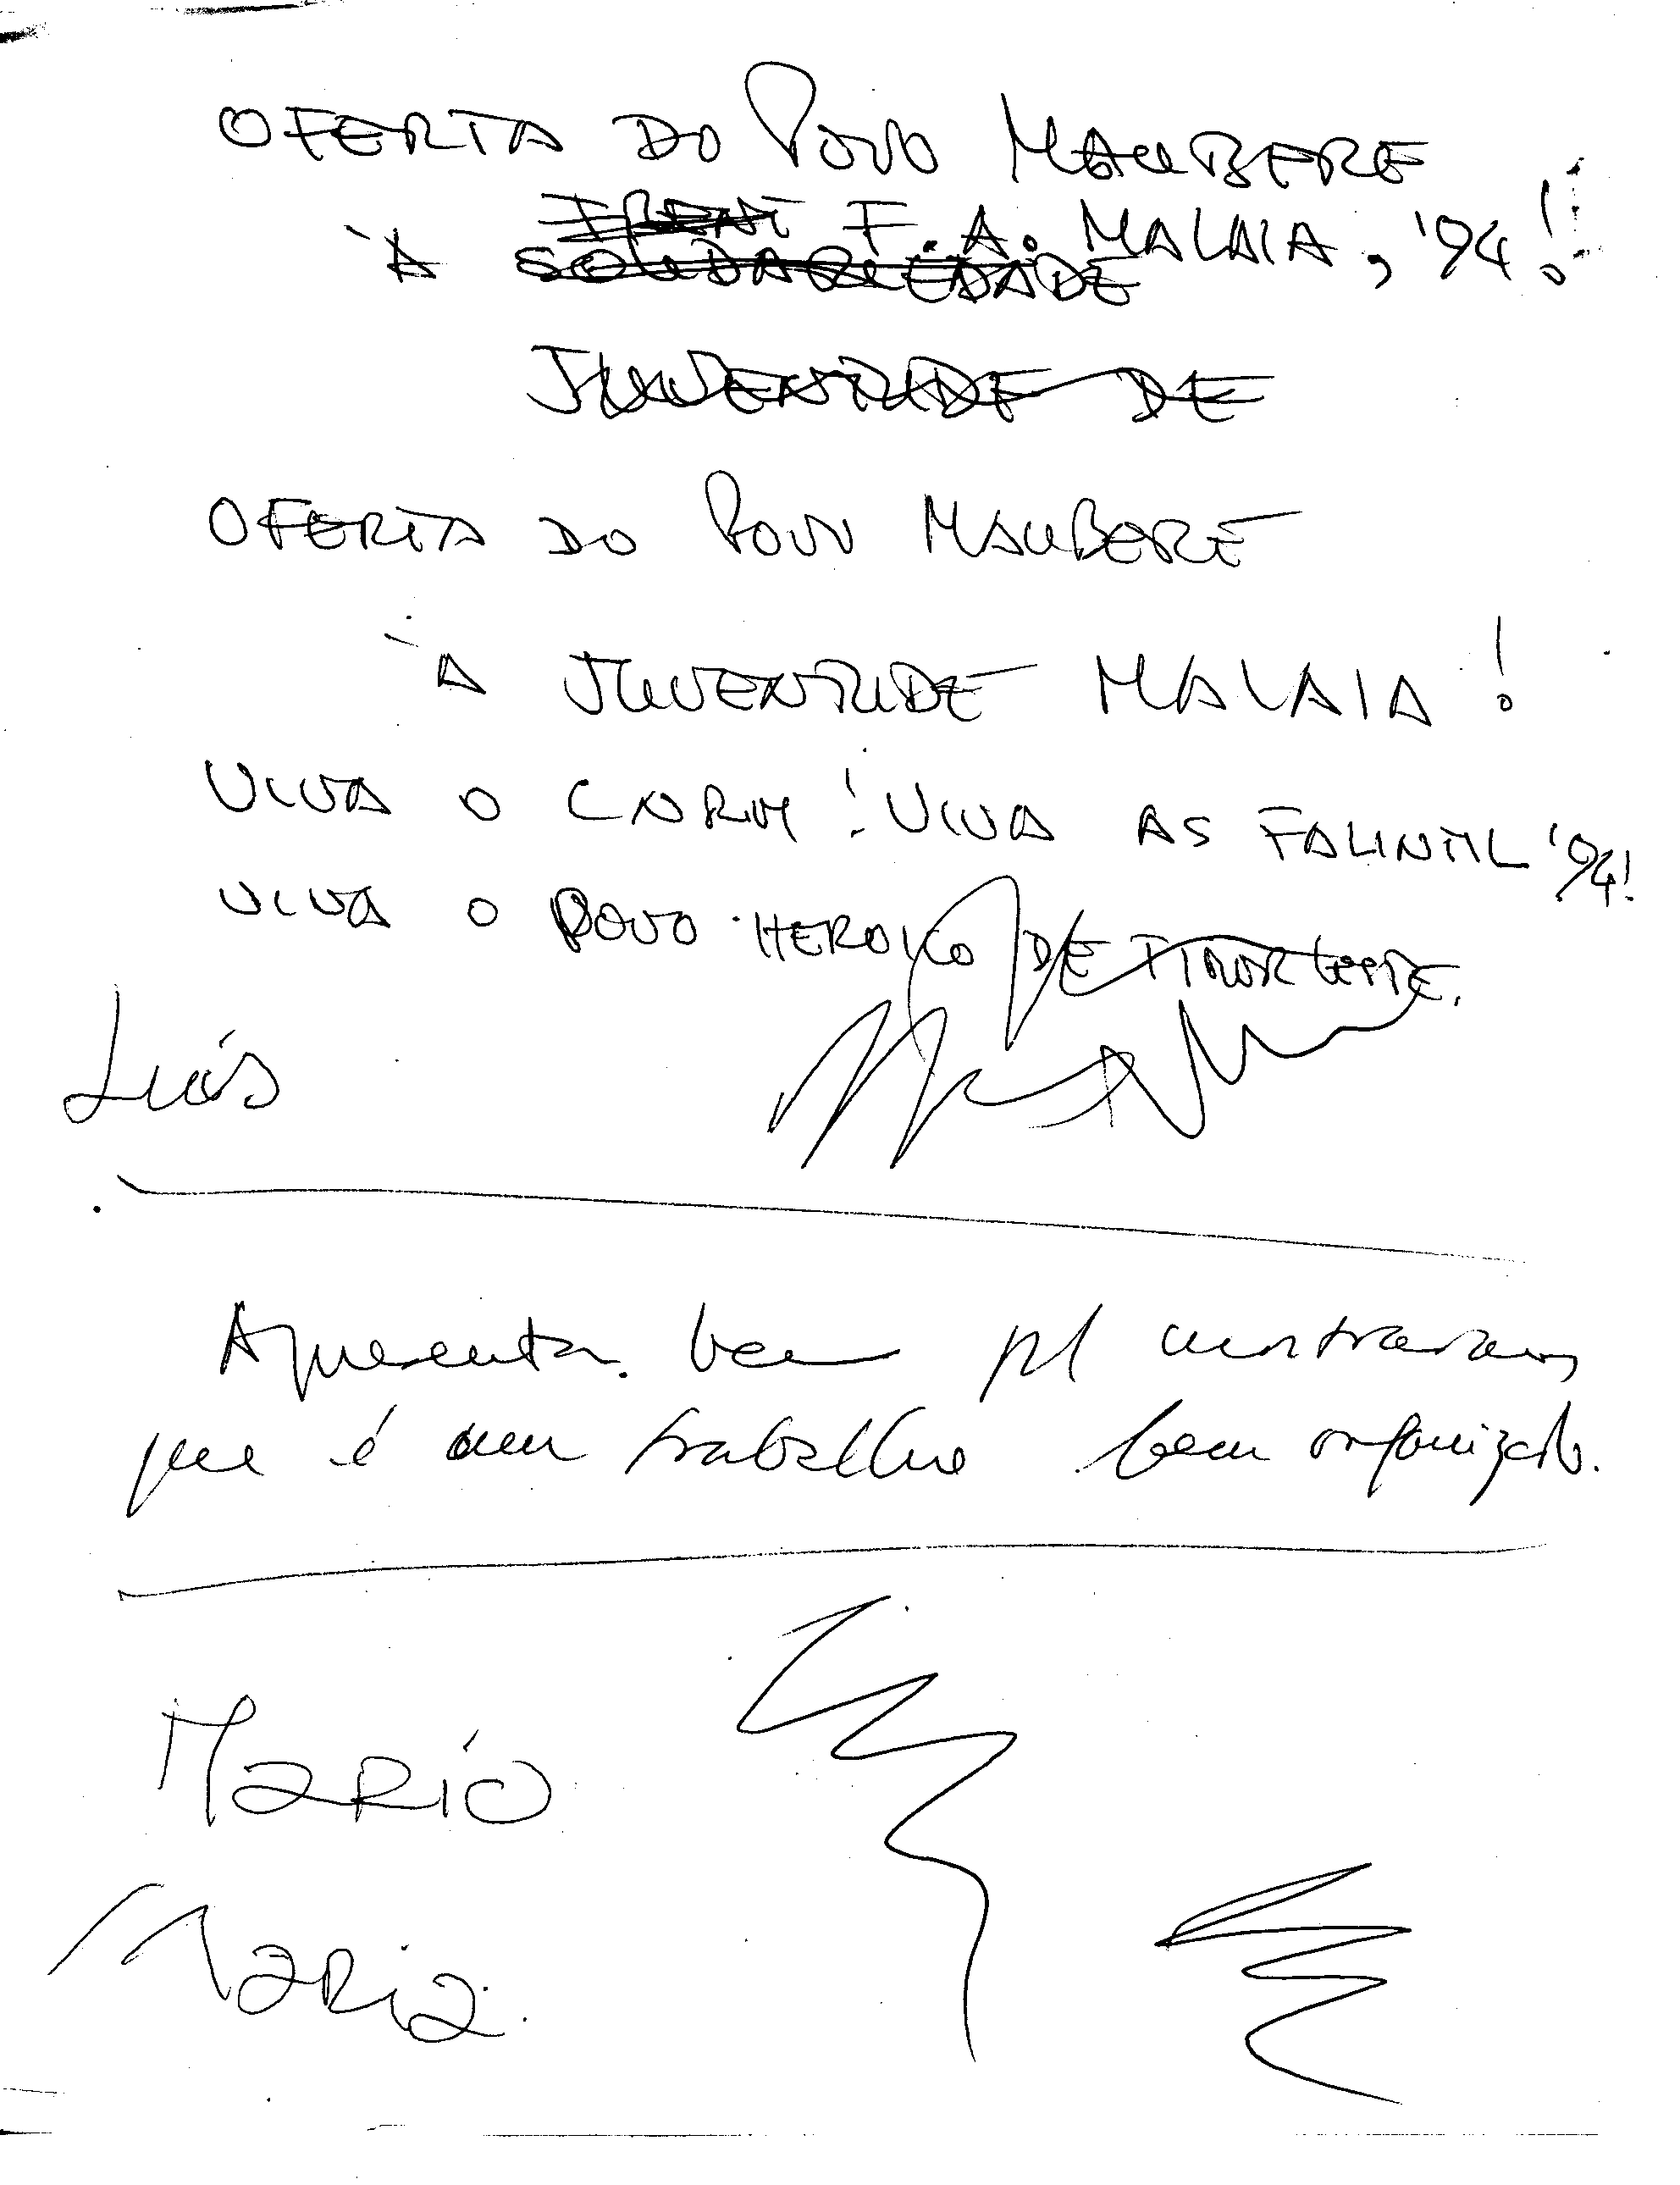 OFERTA DO POVO MAUBERE
F.A. MALAIA, '94!
À SOLIDARIEDADE
JUVENTUDE DE
OFERTA DO POVO MAUBERE
À JUVENTUDE MALAIA!
VIVA O CNRM! VIVA AS FALINTIL '94!
VIVA O POVO HEROICO DE TIMOR LESTE.
Luís
Apresentar bem p/ mostrarmos
que é um trabalho bem organizado.
Mário
Maria